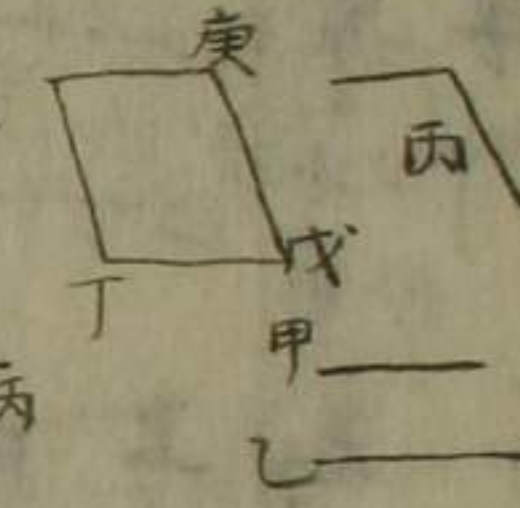 庚
丙
戊
丁
甲
丙
乙